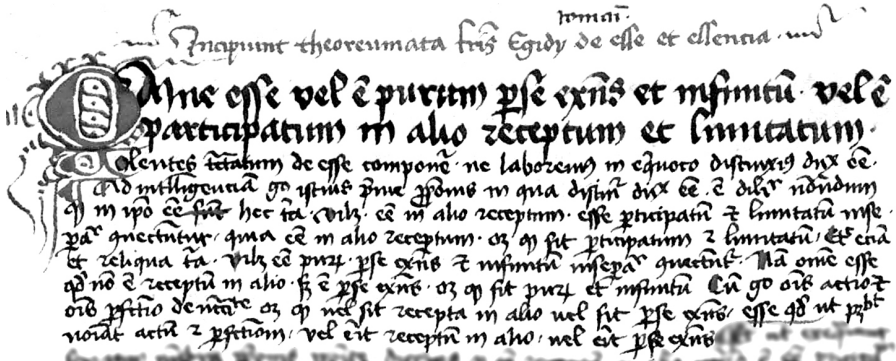 romani
Incipiunt theoreumata fris Egidy de esse et essencia
Omne esse vel ē purum p se exñs et infinitū · vel ē
participatum in alio receptum et limitatum ·
olentes tctatum de esse componē · ne laboremꝰ in eq̇uoco distinxiꝰ dix eē ·
Ad intlligenciā go istius pme pposiōnis in qua distin dix eē ·
qͦ in ipo eē hec tia · vilꝫ · eē in alio receptum · esse pticipatū et limitatū inse ·
paᵃ q̇nectuntur · quia eē in alio receptum · oꝫ qͦ sit pticipatum ⁊ limitatū · Et eciā
et reliqua tia · vilꝫ eē purꝫ · p se exñs et infinitū insepaᵃ q̇nectunt · Nā omne esse
qͩ nō ē receptū in alio · sꝫ ē p se exñs · oꝫ qͦ sit purꝫ et infinitū Cū go oīs actio et
oīs pfectio oꝫ qͦ vel sit recepta in alio vel sit p se exñs · esse qͩ ut
noīat actū ⁊ pfectiom · vel erit receptū in alio · vel erit p se exñs